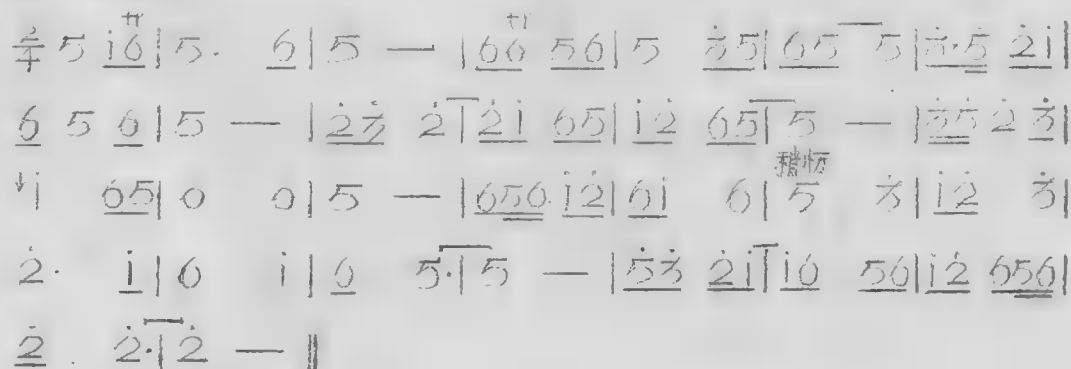 2/4 5 i̇6|5. 6|5 — |66 56|5 3̇5|65 5|3̇·5̇ 2̇i̇|
6 5 6|5 — |2̇3̇ 2̇|2̇i̇ 65|i̇2̇ 65|5 — |3̇5̇ 2̇ 3̇|
↓i̇ 65|0 0|5 — |656 i̇2̇|6i̇ 6|5 3̇|i̇2̇ 3̇|
2̇· i̇|6 i̇|6 5·|5 — |5̇3̇ 2̇i̇|i̇6 56|i̇2̇ 656|
2̇ 2̇·|2̇ — ‖